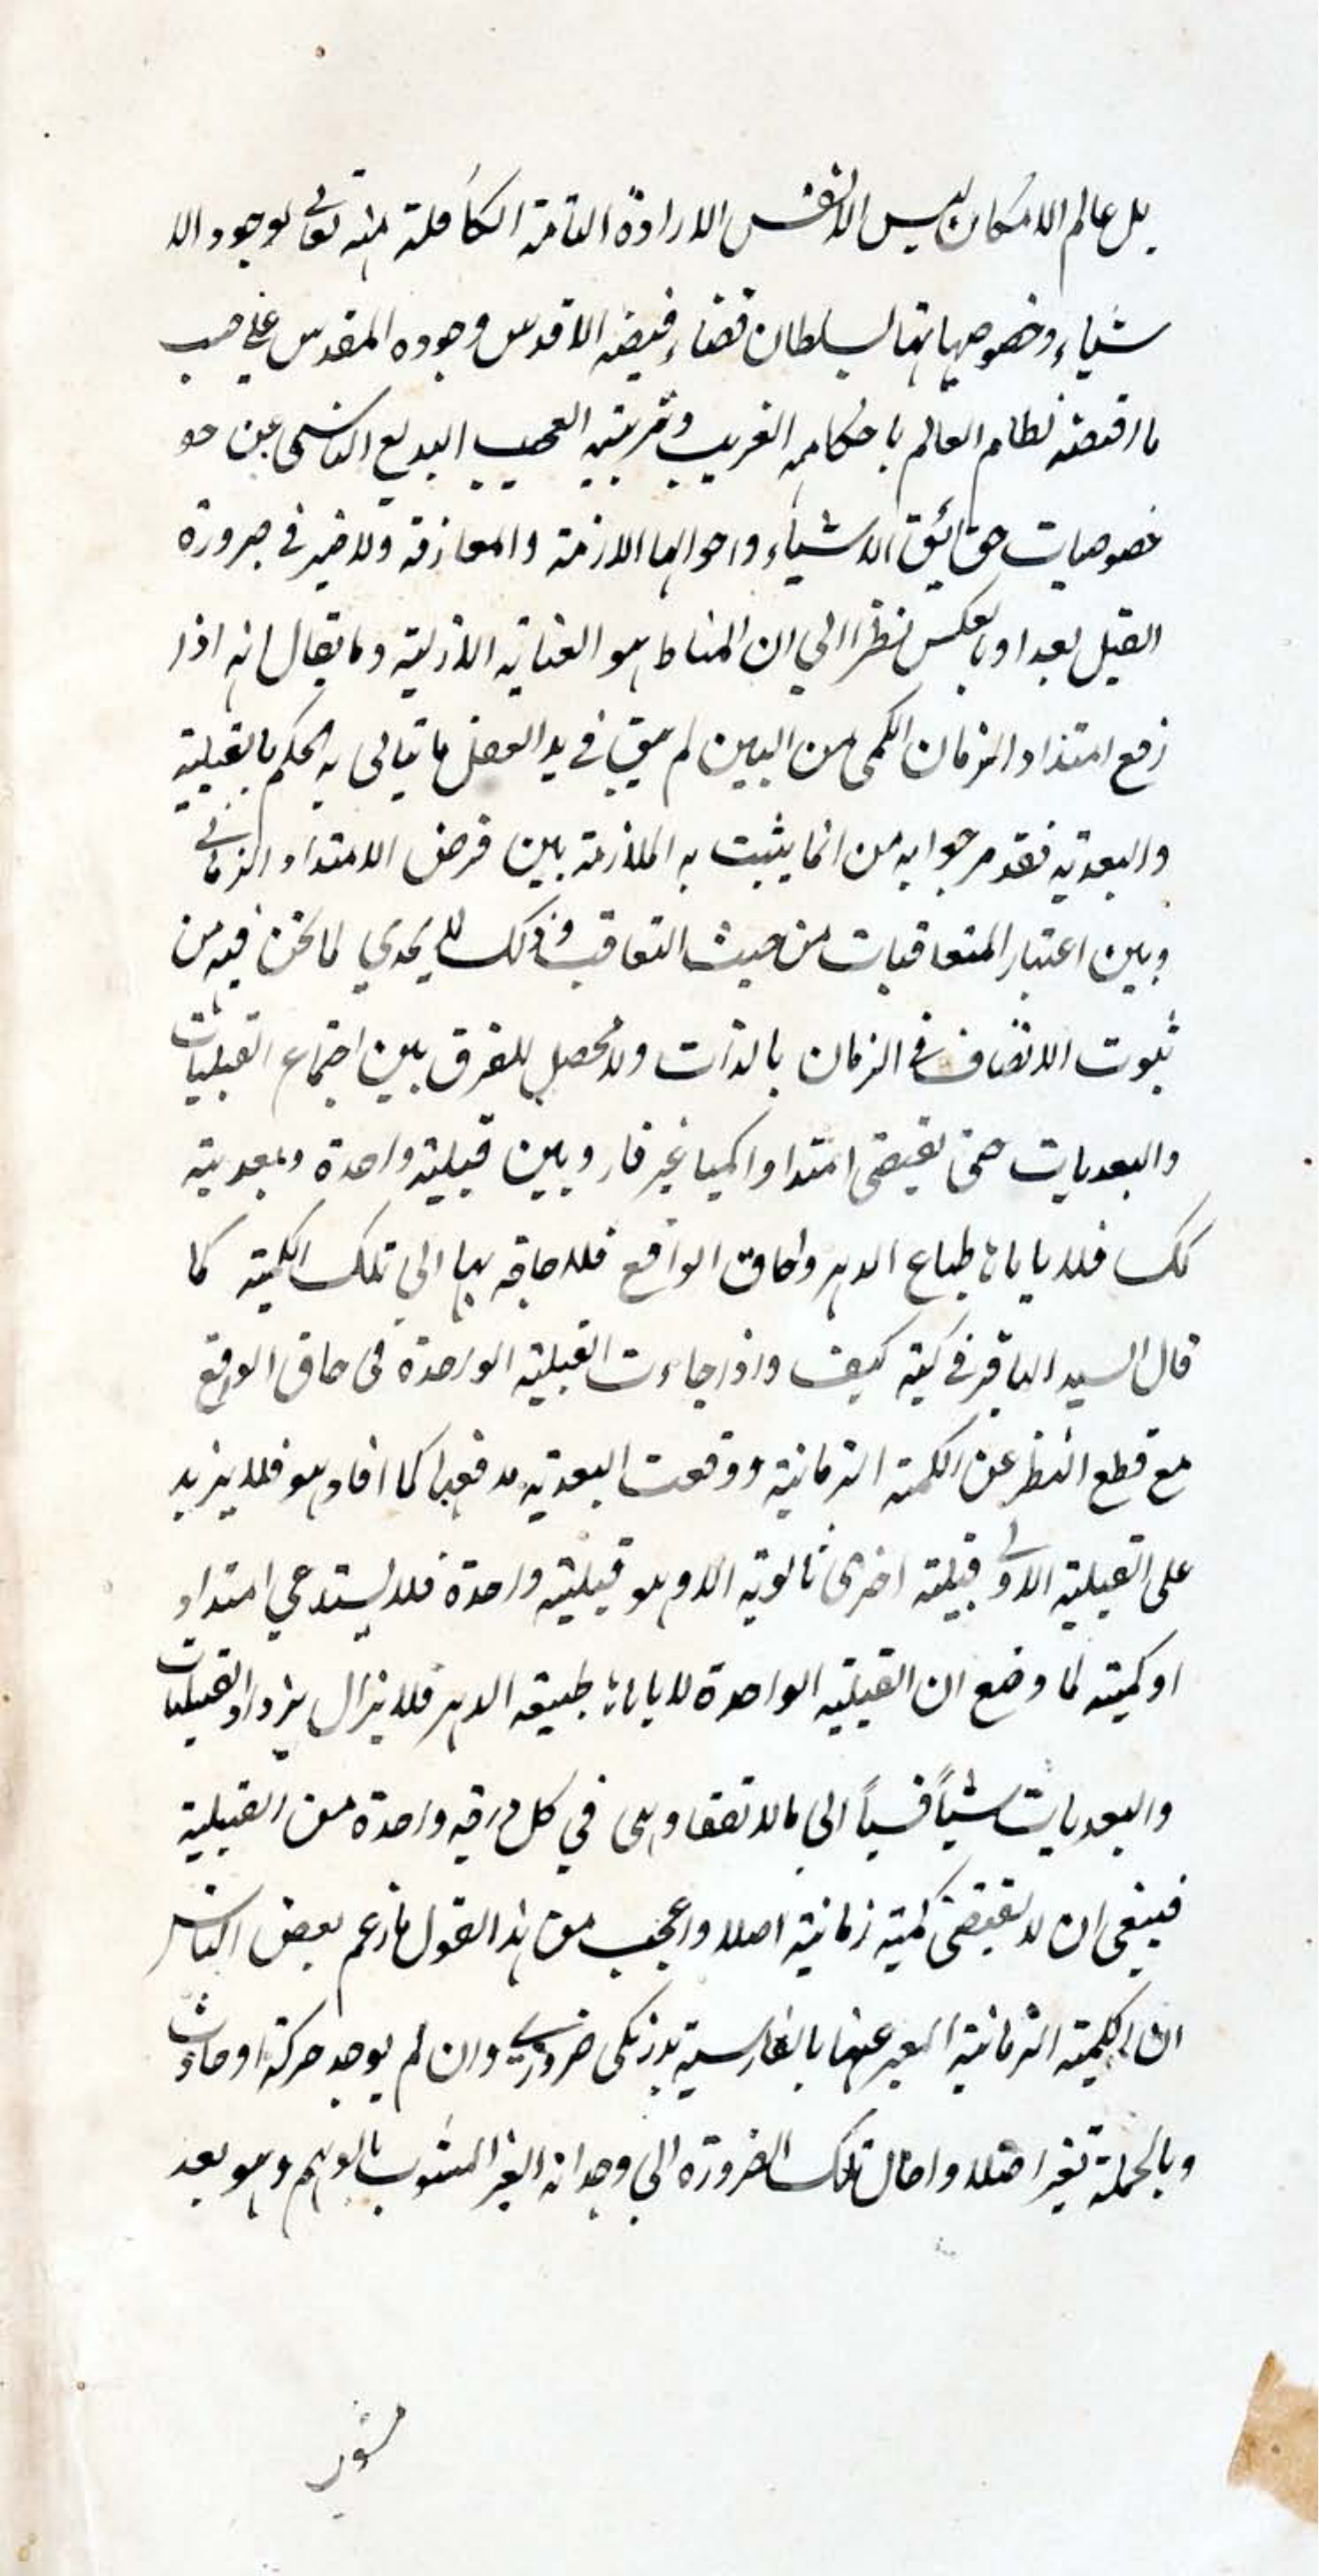 بل عالم الامكان ليس الا نفس الارادة التامة الكاملة منه تعالى لوجود الا
شياء وخصوصياتها لسلطان قضاء فيضه الاقدس وجوده المقدس على حسب
ما اقتضته نظام العالم باحكامه الغريب وترتيبه العجيب البديع الناشى عن حو
خصوصيات حقائق الاشياء واحوالها اللازمة والمفارقة ولا ضير في صرورة
القبل بعدا وبالعكس نظرا الي ان المناط هو العناية الازلية وما يقال انه اذا
رفع امتداد الزمان الكمى من البين لم يبق في يد العقل ما يتاتى به الحكم بالقبلية
والبعدية فقد مر جوابه من انما يثبت به الملازمة بين فرض الامتداد الزمانى
وبين اعتبار المتعاقبات من حيث التعاقب وذلك لا يجدي لما نحن فيه من
ثبوت الاتصاف فى الزمان بالذات ولا محصل للفرق بين اجتماع القبليات
والبعديات حتى يقتضى امتدادا كميا غير قار وبين قبلية واحدة وبعدية
كك فلا ياباه طباع الدهر وحاق الواقع فلا حاجة بها الى تلك الكمية كما
قال السيد الباقر في كتبه كيف واذا جاءت القبلية الواحدة فى حاق الواقع
مع قطع النظر عن الكمية الزمانية ووقعت البعدية موقعها كما افاد هو فلا يزيد
على القبلية الاولى قبلية اخرى ثانوية الا وهو قبلية واحدة فلا يستدعي امتداد
او كمية لما وضع ان القبلية الواحدة لا ياباه طبيعة الدهر فلا يزال يزداد القبليات
والبعديات شيأ فسيأ الى ما لا تقف وهى في كل مرتبة واحدة من القبلية
فينبغى ان لا يقتضى كمية زمانية اصلا واعجب من هذا القول ما زعم بعض الناس
ان الكمية الزمانية المعبر عنها بالفارسية بدرنكى ضروري وان لم يوجد حركة او حادث
وبالجملة تغير اصلا واحال تلك الضرورة الي وجدانه الغير المشوب بالوهم وهو بعد